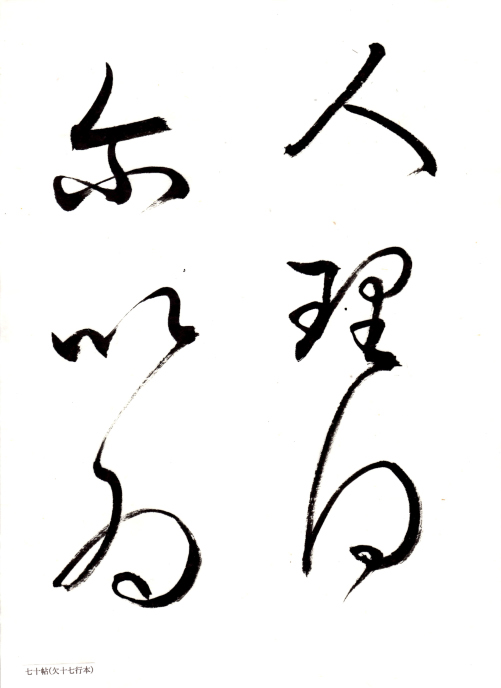 人理得
尓以為
七十帖(欠十七行本)